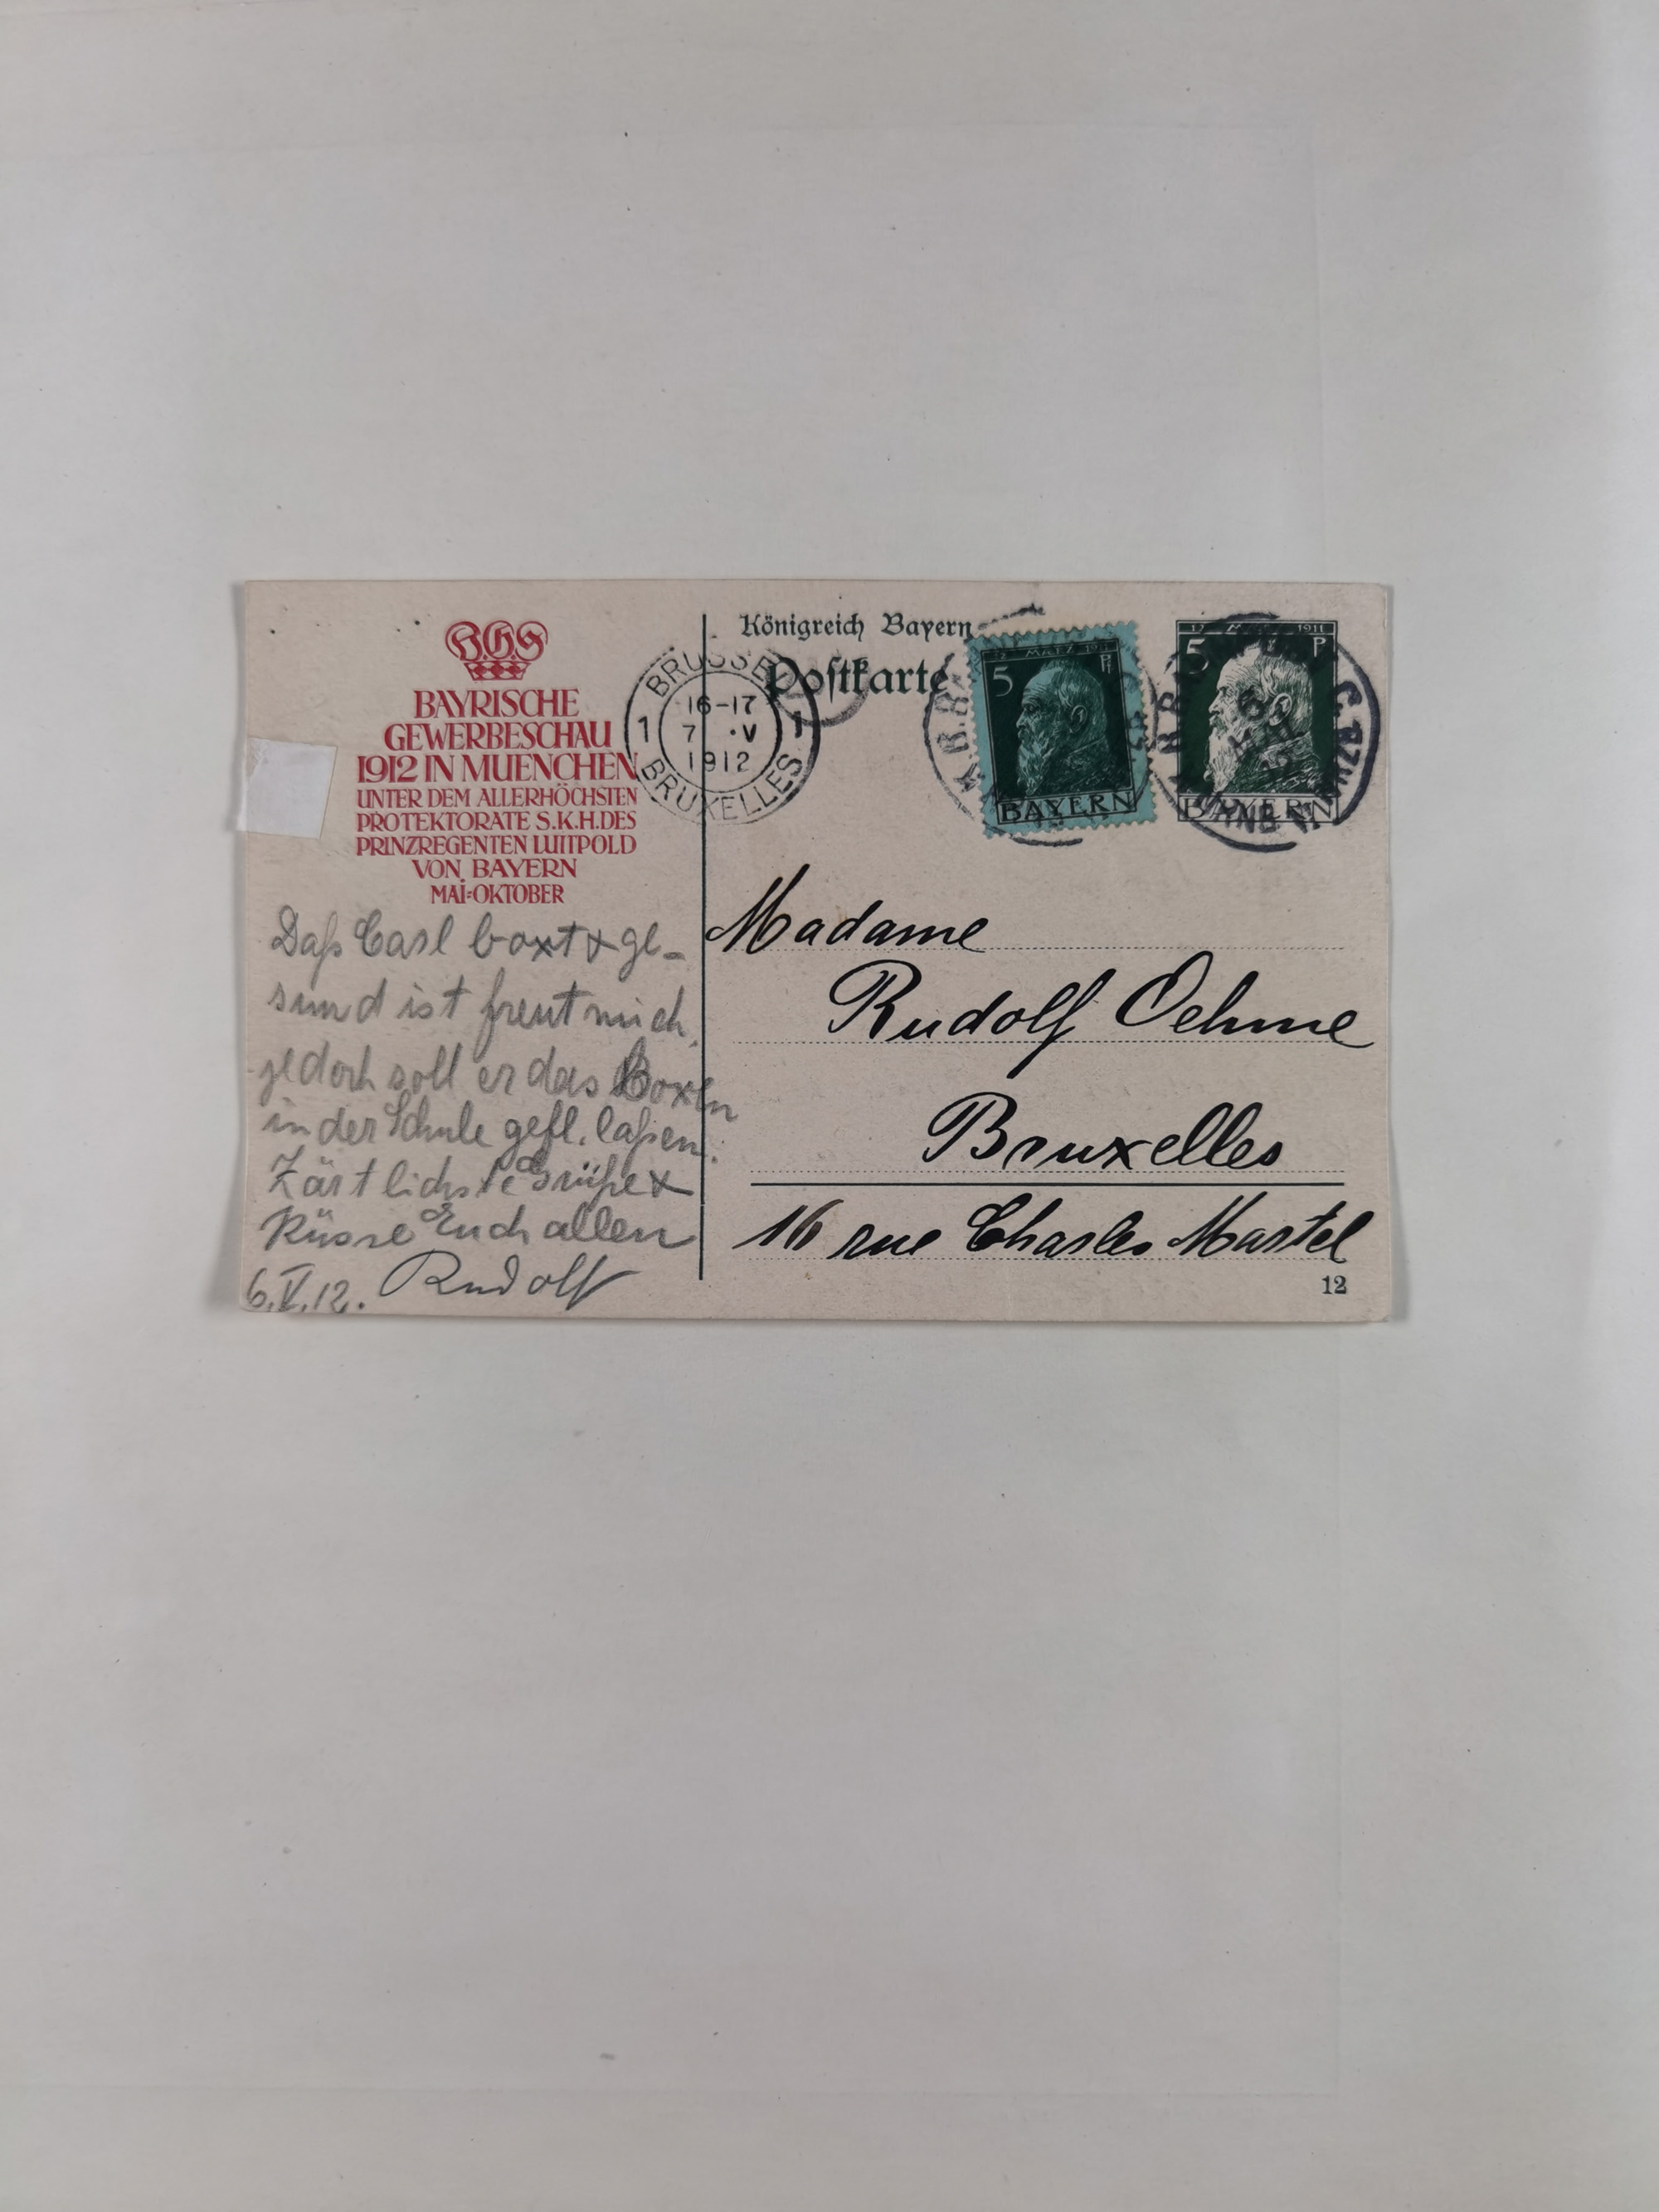 B.G.S
BAYRISCHE
GEWERBESCHAU
1912 IN MUENCHEN
UNTER DEM ALLERHÖCHSTEN
PROTEKTORATE S.K.H.DES
PRINZREGENTEN LUITPOLD
VON BAYERN
MAI=OKTOBER
Daß Carl boxt & ge-
sund ist freut mich,
jedoch soll er das Boxen
in der Schule gefl. laßen.
Zärtlichste Grüße &
Küsse Euch allen
6.V.12. Rudolf
BRUSSEL
16-17
1 7 ·V 1
1912
BRUXELLES
Königreich Bayern
Postkarte
12 MÄRZ 1911
5 Pf
BAYERN
12 1911
5 P
BAYERN
Madame
Rudolf Oehme
Bruxelles
16 rue Charles Martel
12